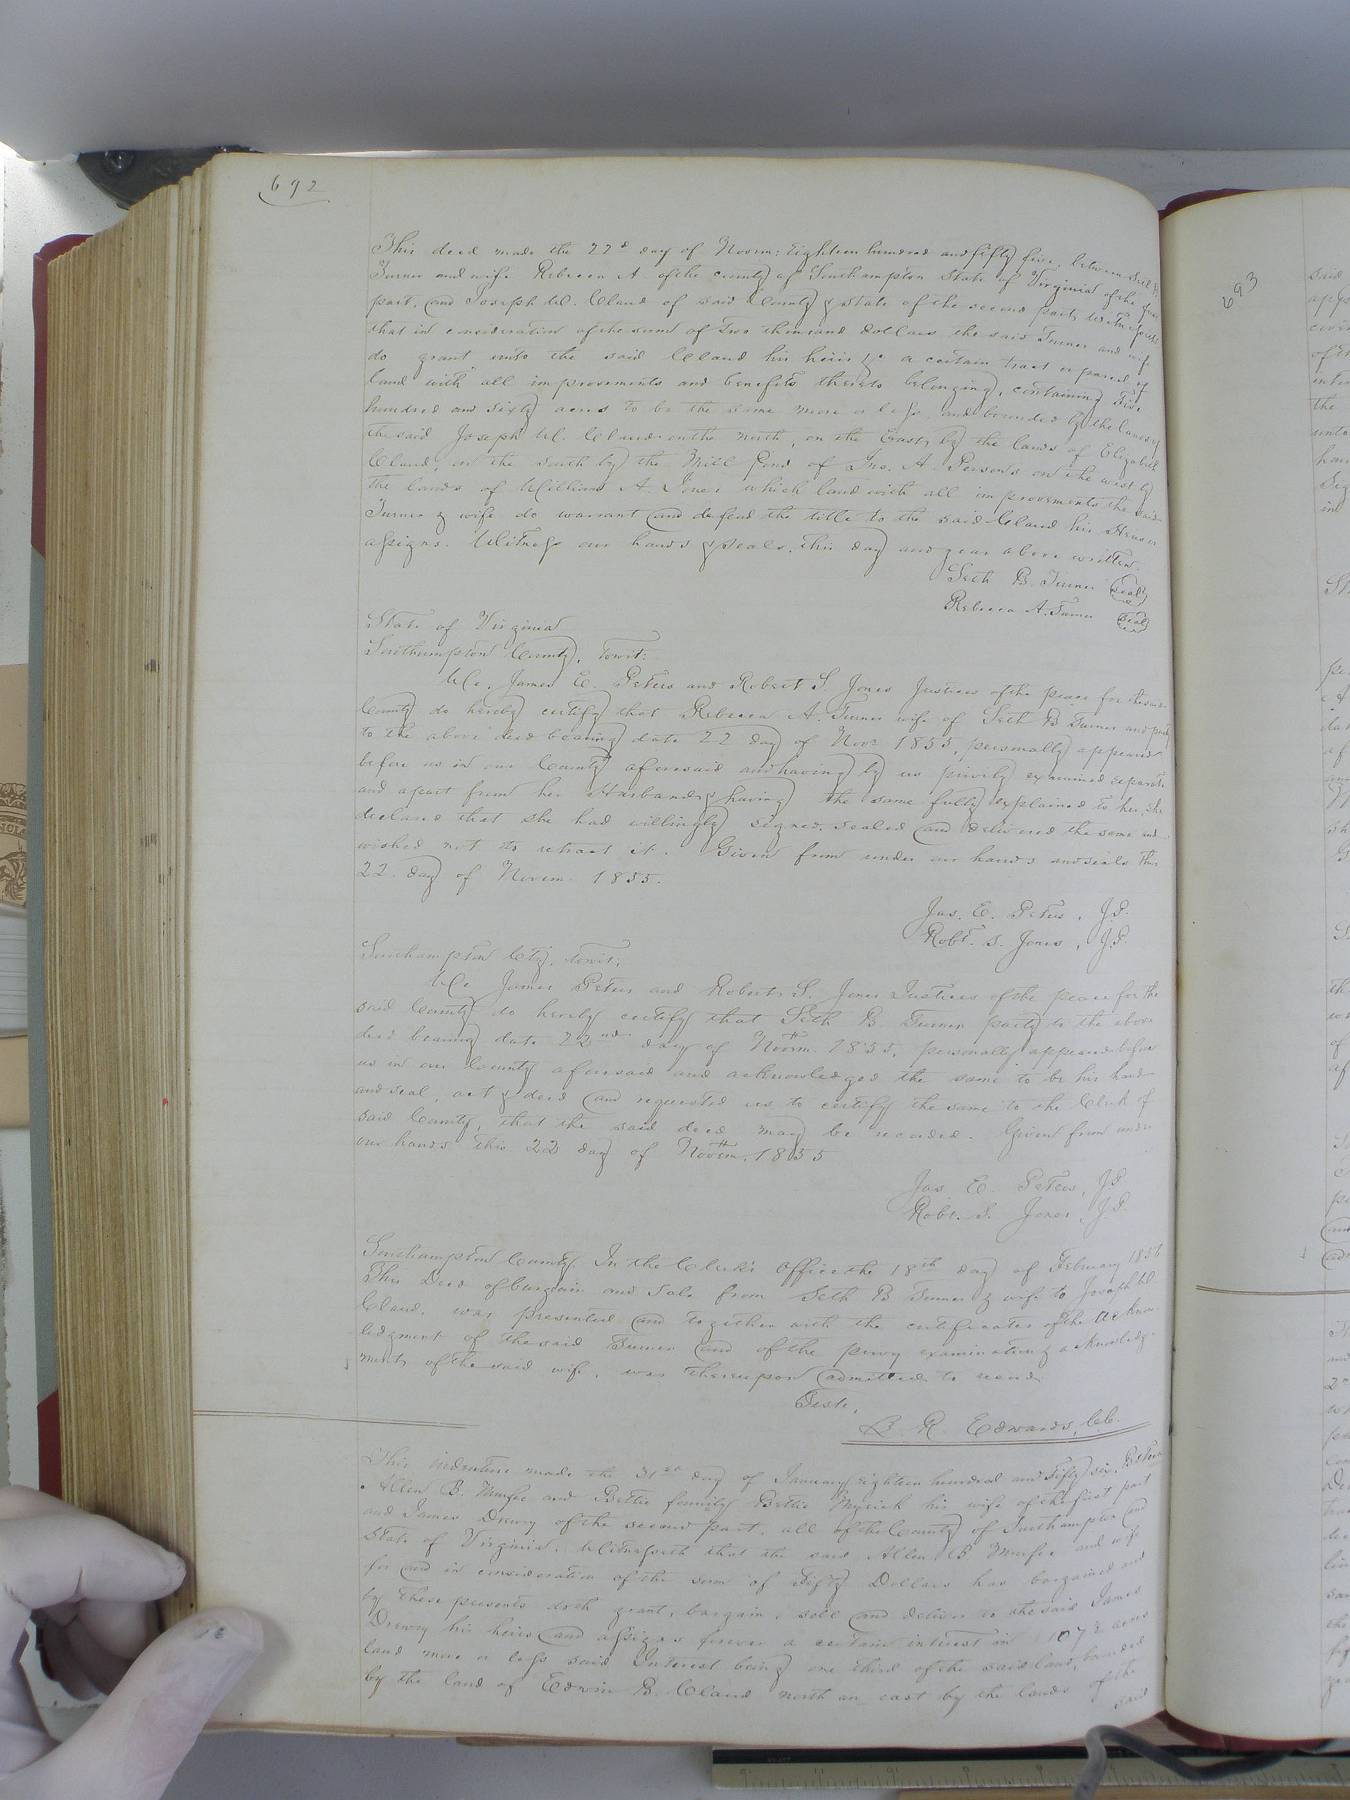 692
This deed made the 22d day of Novm: Eighteen hundred and fifty five, between Seth B.
Turner and wife Rebecca A. of the county of Southampton State of Virginia of the first
part, and Joseph W. Claud of said County & State of the second part, Witnesseth
that in consideration of the sum of Two thousand dollars the said Turner and wife
do grant unto the said Claud his heirs &c a certain tract or parcel of
land with all improvements and benefits thereto belonging, containing Five
hundred and sixty acres to be the same more or less, and bounded by the lands of
the said Joseph W. Claud on the north, on the East, by the lands of Elizabeth
Claud, on the south by the Mill Pond of Jno. A. Persons on the west by
the lands of William A. Jones which land with all improvements the said
Turner & wife do warrant and defend the title to the said Claud his Heirs or
assigns. Witness our hands & seals, this day and year above written.
Seth B. Turner (seal)
Rebecca A. Turner (seal)
State of Virginia
Southampton County, Towit:
We, James E. Peters and Robert S. Jones Justices of the peace for the said
County do hereby certify that Rebecca A. Turner wife of Seth B Turner and party
to the above deed bearing date 22 day of Novr 1855, personally appeared
before us in our County aforesaid and having by us privily examined separate
and apart from her Husband, & having the same fully explained to her, she
declared that she had willingly signed, sealed and delivered the same and
wished not to retract it. Given from under our hands and seals this
22. day of Novem. 1855.
Jas. E. Peters, J.P.
Robt. S. Jones, J.P.
Southampton Cty, towit;
We James Peters and Robert S. Jones Justices of the peace for the
said County do hereby certify that Seth B. Turner party to the above
deed bearing date 22nd day of Novem. 1855, personally appeared before
us in our County aforesaid and acknowledged the same to be his hand
and seal, act & deed and requested us to certify the same to the Clerk of
said County, that the said deed may be recorded. Given from under
our hands this 22 day of Novem, 1855
Jas E. Peters, J.P.
Robt. S. Jones, J.P.
Southampton County. In the Clerk's Office the 18th day of February 1856
This Deed of bargain and Sale from Seth B Turner & wife to Joseph W.
Claud, was presented and together with the certificates of the acknow-
ledgment of the said Turner and of the privy examination & acknowledg-
ment, of the said wife, was thereupon admitted to record.
Teste,
L. R. Edwards, C.C.
This indenture made the 31st day of January eighteen hundred and Fifty six, Between
Allen B. and Bettie family Bettie Myrick his wife of the first part
and James Drewry of the second part, all of the County of Southampton and
State of Virginia. Witnesseth that the said Allen B and wife
for and in consideration of the sum of Fifty Dollars has bargained and
by these presents doth grant, bargain, sell and deliver to the said James
Drewry his heirs and assigns forever a certain interest in 107½ acres
land more or less said Interest being one third of the said land, bounded
by the land of Edwin B. Claud north an east by the lands of the
said
693